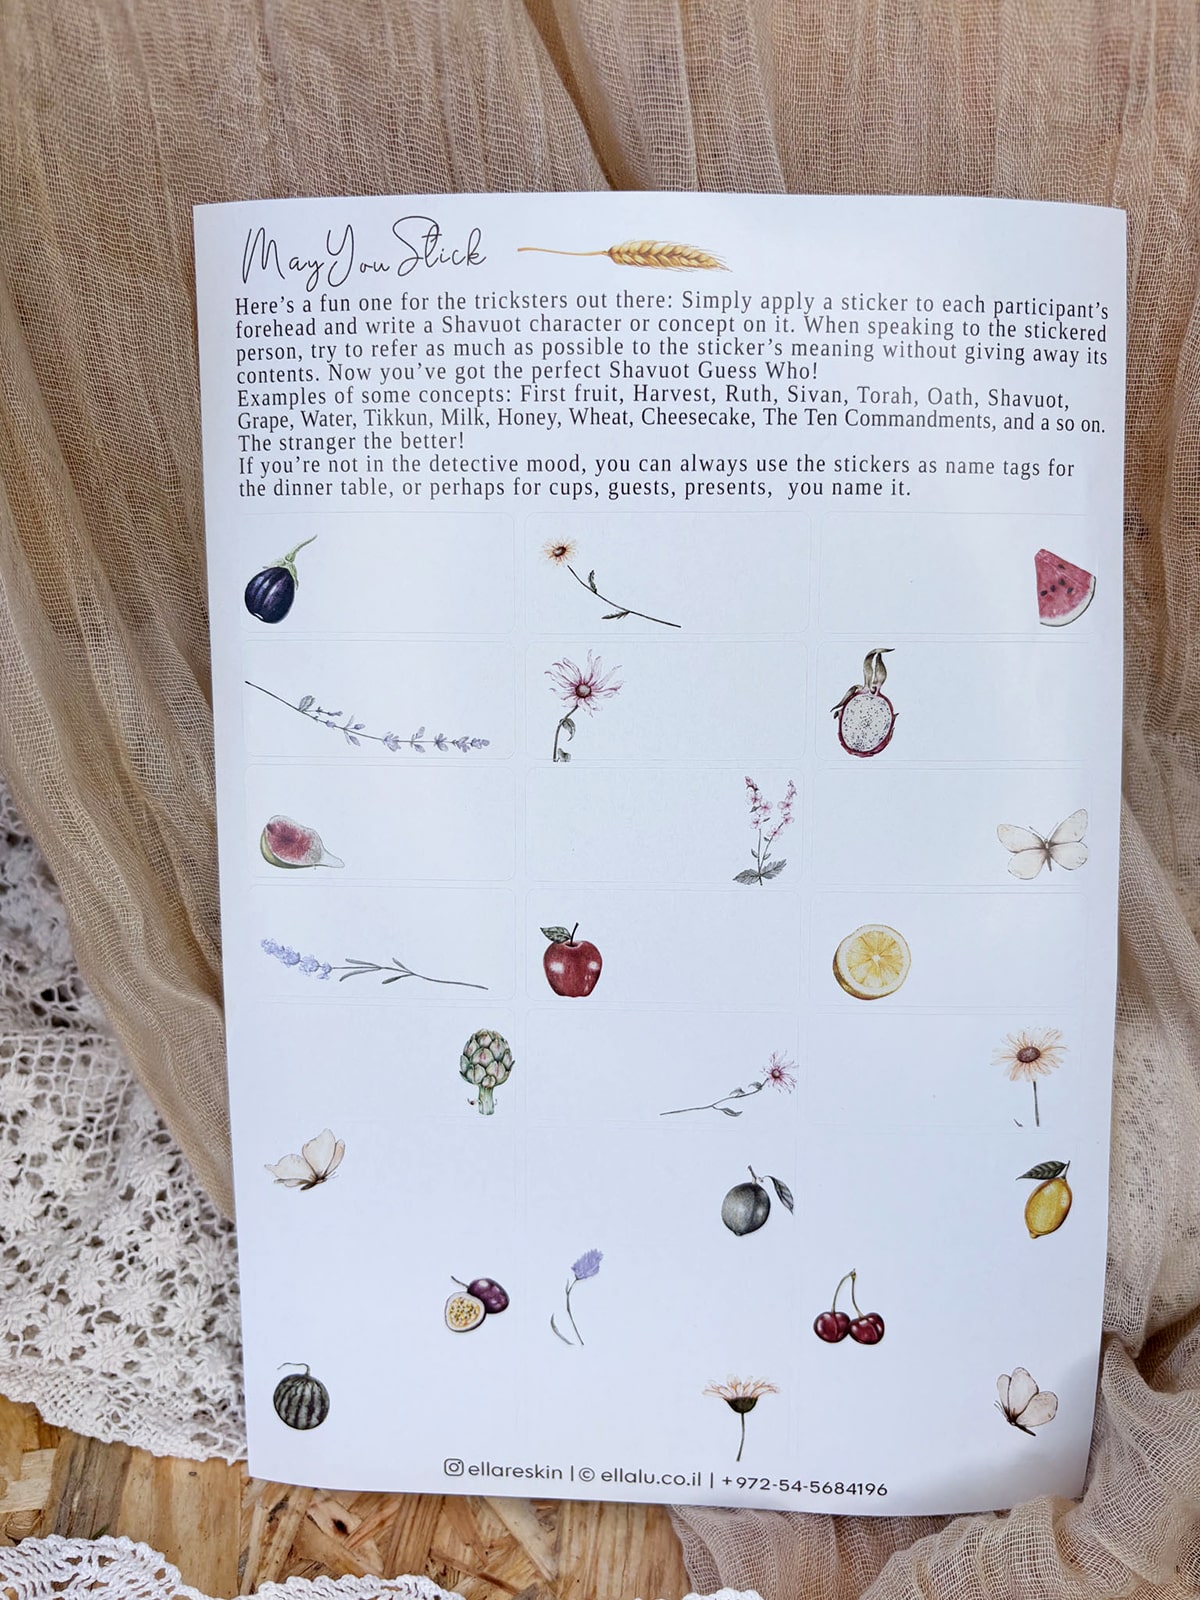 May You Stick
Here's a fun one for the tricksters out there: Simply apply a sticker to each participant's
forehead and write a Shavuot character or concept on it. When speaking to the stickered
person, try to refer as much as possible to the sticker's meaning without giving away its
contents. Now you've got the perfect Shavuot Guess Who!
Examples of some concepts: First fruit, Harvest, Ruth, Sivan, Torah, Oath, Shavuot,
Grape, Water, Tikkun, Milk, Honey, Wheat, Cheesecake, The Ten Commandments, and a so on.
The stranger the better!
If you're not in the detective mood, you can always use the stickers as name tags for
the dinner table, or perhaps for cups, guests, presents,  you name it.
ellareskin | © ellalu.co.il | +972-54-5684196